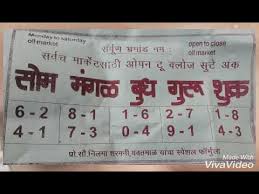 Monday to saturday
all market
संपूर्ण भ्रमांड नमः
open to close
all market
सर्वच मार्केटसाठी ओपन टू क्लोज सुटे अक
सोम मंगळ बुध गुरू शुक्र
6-2 8-1 1-6 2-7 1-8
4-1 7-3 0-2 9-1 4-3
प्रो.सौ निलमा शरमनी,यवतमाळ यांचा स्पेशल फॉर्मुला
Made With
VivaVideo